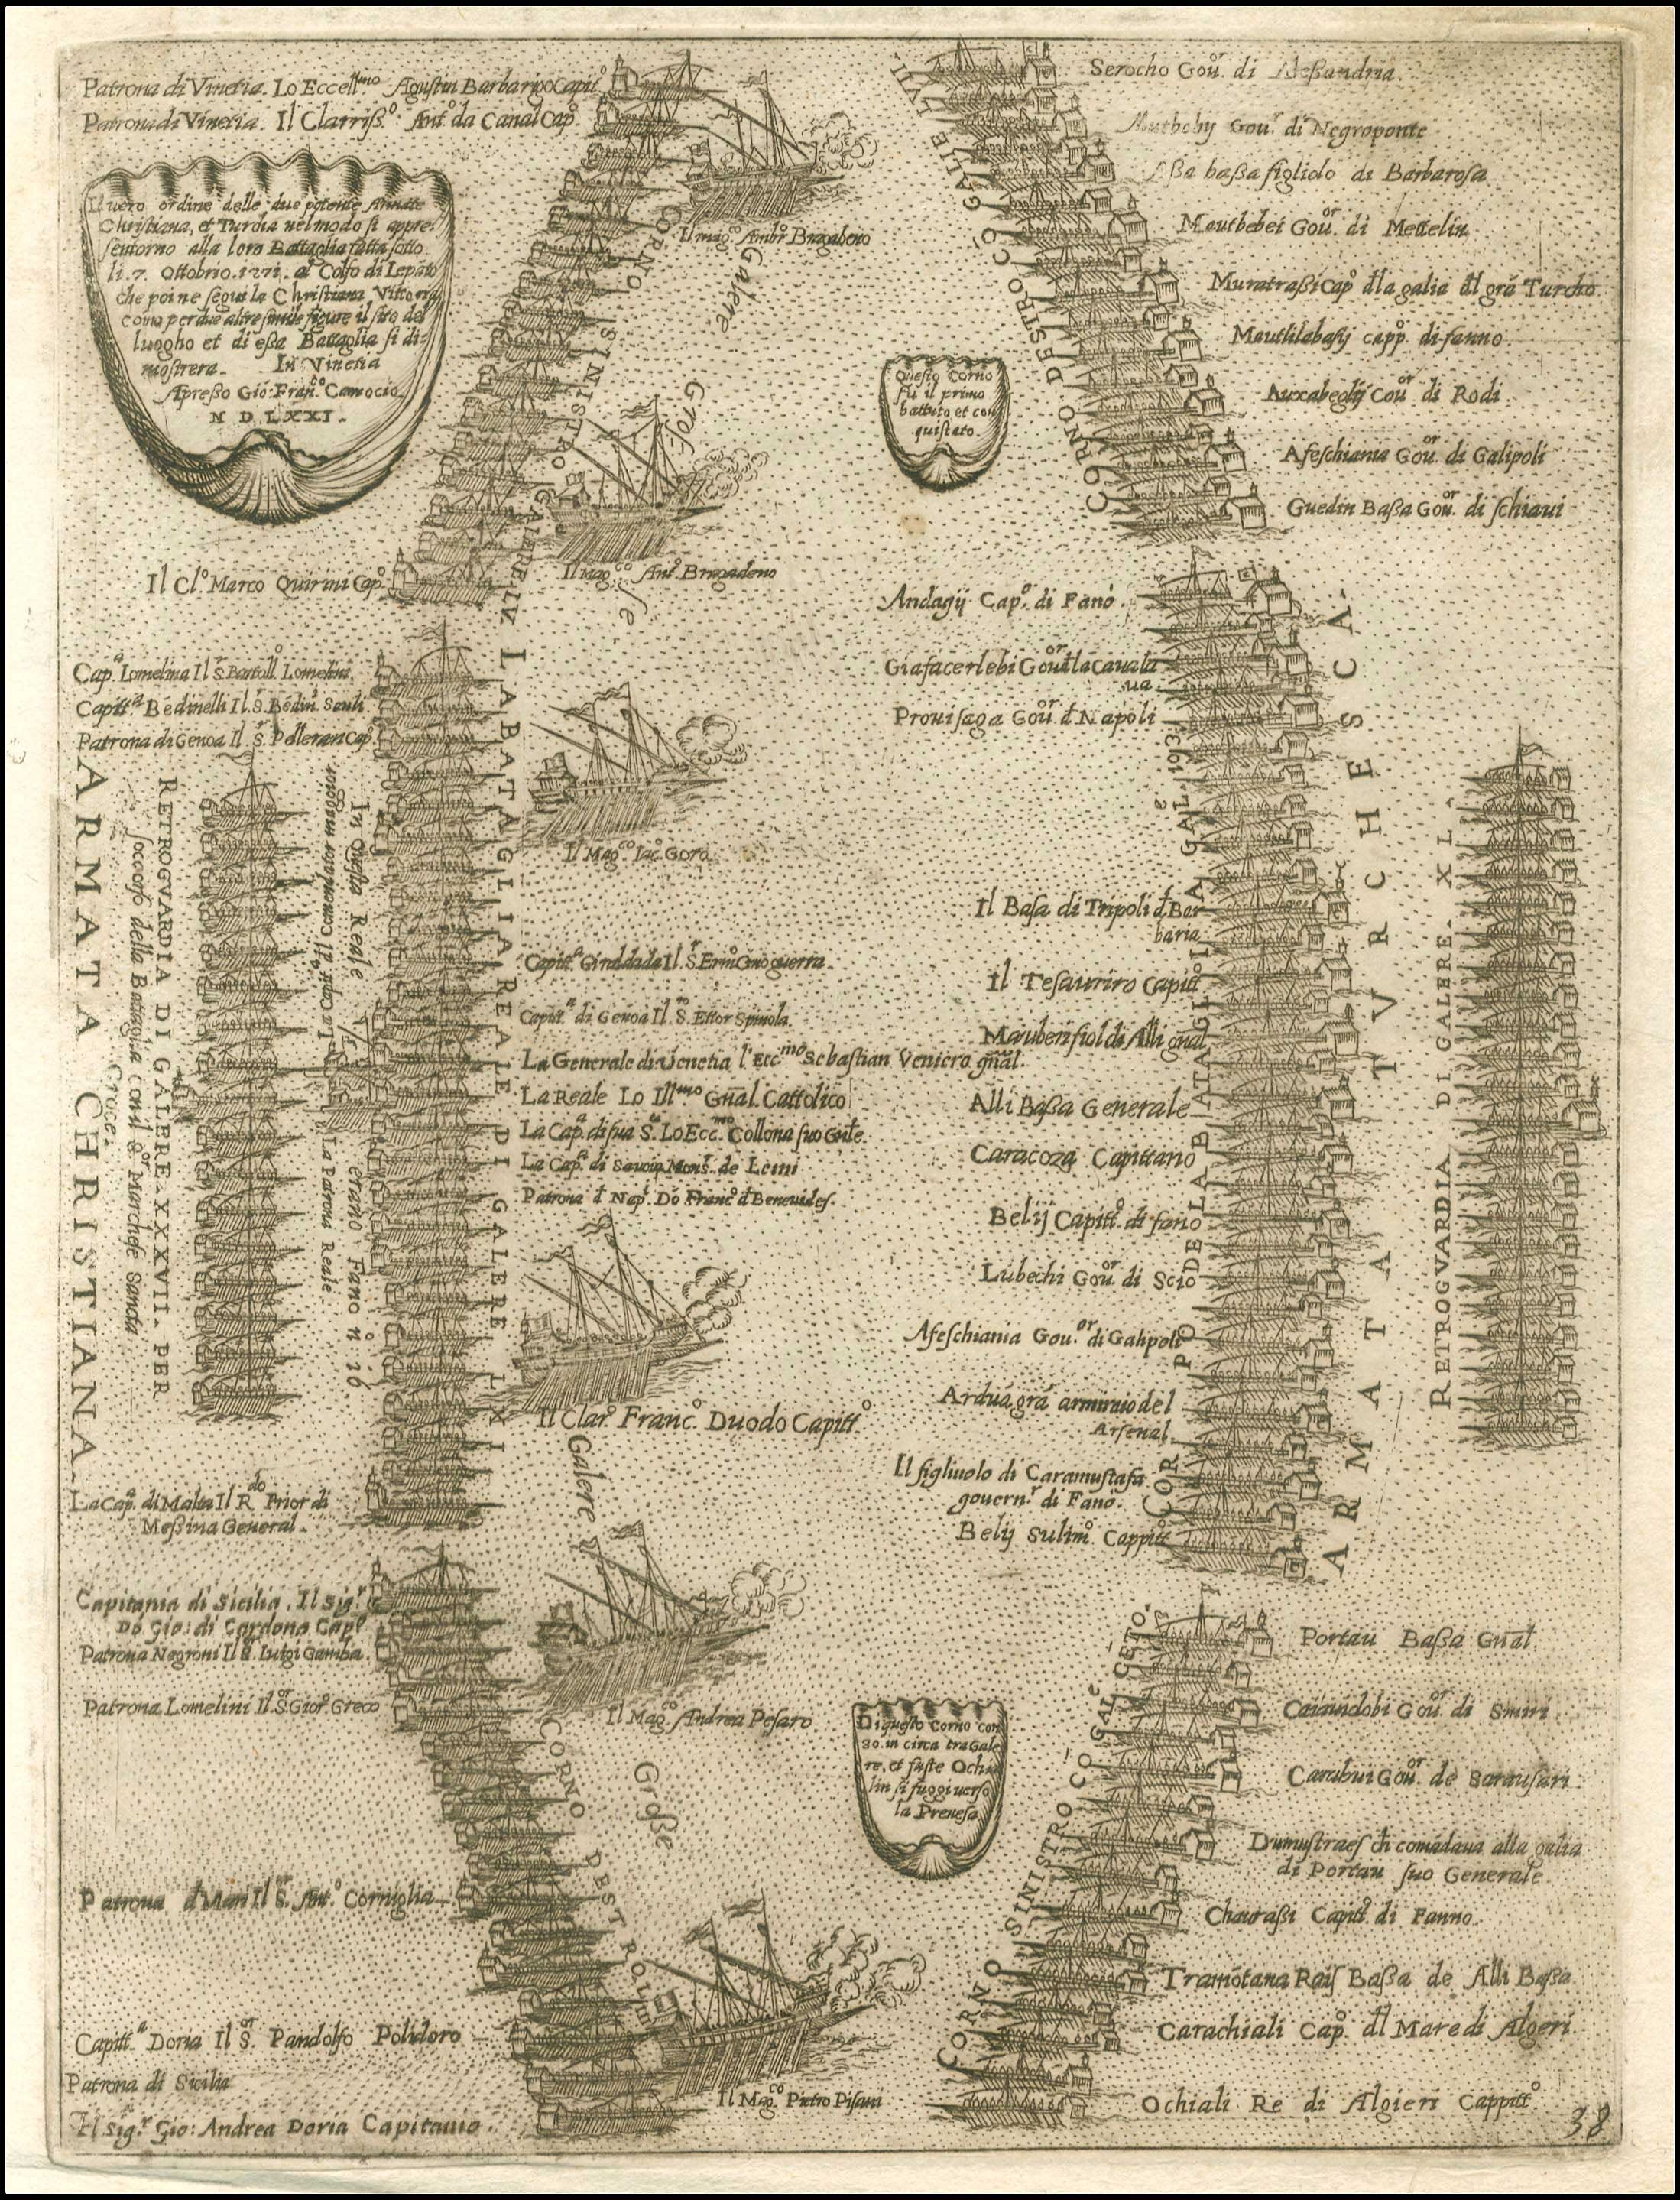 Patrona di Vinetia. Lo Eccell^mo Agustin Barbarigo Capit^o
Patrona di Vinetia. Il Clariß^o. Ant^o. da Canal Cap^o.
Il uero ordine delle due potente Armate
Christiana, et Turcha nel modo si appre=
sentorno alla loro Battaglia fatta sotto
li. 7. Ottobrio. 1571. al Colfo di Lepāto
che poi ne seguı la Christiana Vittoria
como per due altre simile figure il sito del
luogho et di eßa Battaglia si di=
mostrera. In Vinetia
Apreßo Gio: Franc^o. Camocio.
M D LXXI.
Il mag^o. Ambr^o. Bragadeno
CORNO SINISTRO GALERE LV.
Galere Große.
Il mag^co. Ant^o. Bragadeno
Il Cl^o. Marco Quirini Cap^o.
Serocho Gou^r. di Aleßandria.
Gou^r. di Negroponte
baßa figliolo di Barbarosa
Mautbebei Gou^or. di Mettelin
Muratraßi Cap^o. dla galia dl grā Turcho
Mautlilabasij capp^o. di fanno
Auxabeglij Gou^or. di Rodi
Afeschiama Gou^or. di Galipoli
Guedin Baßa Gou^or. di schiaui
CORNO DESTRO CŌ GALIE LVII.
Questo Corno
fu il primo
battuto et con
quistato.
Cap^a. Lomelina Il S^r. Bartoll^o. Lomelini
Capitt^a. Bedinelli Il. S^r. Bēdin^o. Sauli
Patrona di Genoa Il S^r. Pelleran Cap^o.
ARMATA CHRISTIANA.
RETROGVARDIA DI GALERE XXXVII. PER
soccorso della Battaglia con il S^or. Marchese Sancta
Croce.
In Questa Reale
erano Fano n^o 16
La Patrona Reale.
LA BATAGLIA REALE DI GALERE LXII
Il Mag^co Iac^o Goro.
Capitt^a. di Genoa Il S^r. Ettor Spinola.
La Generale di Uenetia l'Ecc^mo Sebastian Veniero gñal.
La Reale Lo Ill^mo Gñal. Cattolico
La Cap^a. di sua S^a. Lo Ecc^mo. Collona suo Gñle.
La Cap^a. di Sauoia Mons^r. de Leini
Patrona d Nap^i. Dō Franc^o d Beneuides.
Il Clar^o Franc^o. Duodo Capitt^o.
La Cap^a. di Malta Il R^do Prior di
Meßina General.
Andagij Cap^o. di Fano.
Giafacerlebi Gou^or. dla Cauala
ua.
Prouisaga Gou^or. d Napoli
Il Basa di Tripoli d Bar=
baria
Il Tesauriro Capitt^o
Mauberifiol di Alli gñal
Alli Baßa Generale
Caracoza Capittano
Belij Capitt^o. di fano
Lubechi Gou^or. di Scio
Afeschiama Gou^or. di Galipoli
Ardua grā arminio del
Arsenal.
Il figliuolo di Caramustafa
gouern^r. di Fano.
Belij Sulim^o. Cappitt^o
CORPO DE LA BATAGLIA GAL^e. 193.
ARMATA TVRCHESCA.
RETROGVARDIA DI GALERE. XL.
Capitania di Sicilia. Il Sig^r.
Dō Gio: di Cardona Cap^o
Patrona Negroni Il S^r. Luigi Gamba.
Patrona Lomelini Il. S^or. Gior^o. Greco
Patrona d Mari Il S^or. Ant^o. Corniglia
Capitt^a. Doria Il S^or. Pandolfo Polidoro
Patrona di Sicilia
Il sig^r. Gio: Andrea Doria Capitanio.
Galere Große
Il Mag^o. Andrea Pesaro
CORNO DESTRO
Il Mag^co Pietro Pisani
Di questo corno con
30. in circa tra Gale
re, et fuste Ochia
lin si fuggi uerso
la Preuesa
CORNO SINISTRO CŌ GAL^e CĒTO.
Portau Baßa Gñal.
Caiaudobi Gou^or. di Smiri.
Carabui Gou^or. de Sarausari.
Dumustraes ch comādaua alla galia
di Portau suo Generale
Chauraßi Capitt^o. di Fanno.
Tramōtana Rais Baßa de Alli Baßa
Carachiali Cap^o. dl Mare di Algeri
Ochiali Re di Algieri Cappitt^o
38